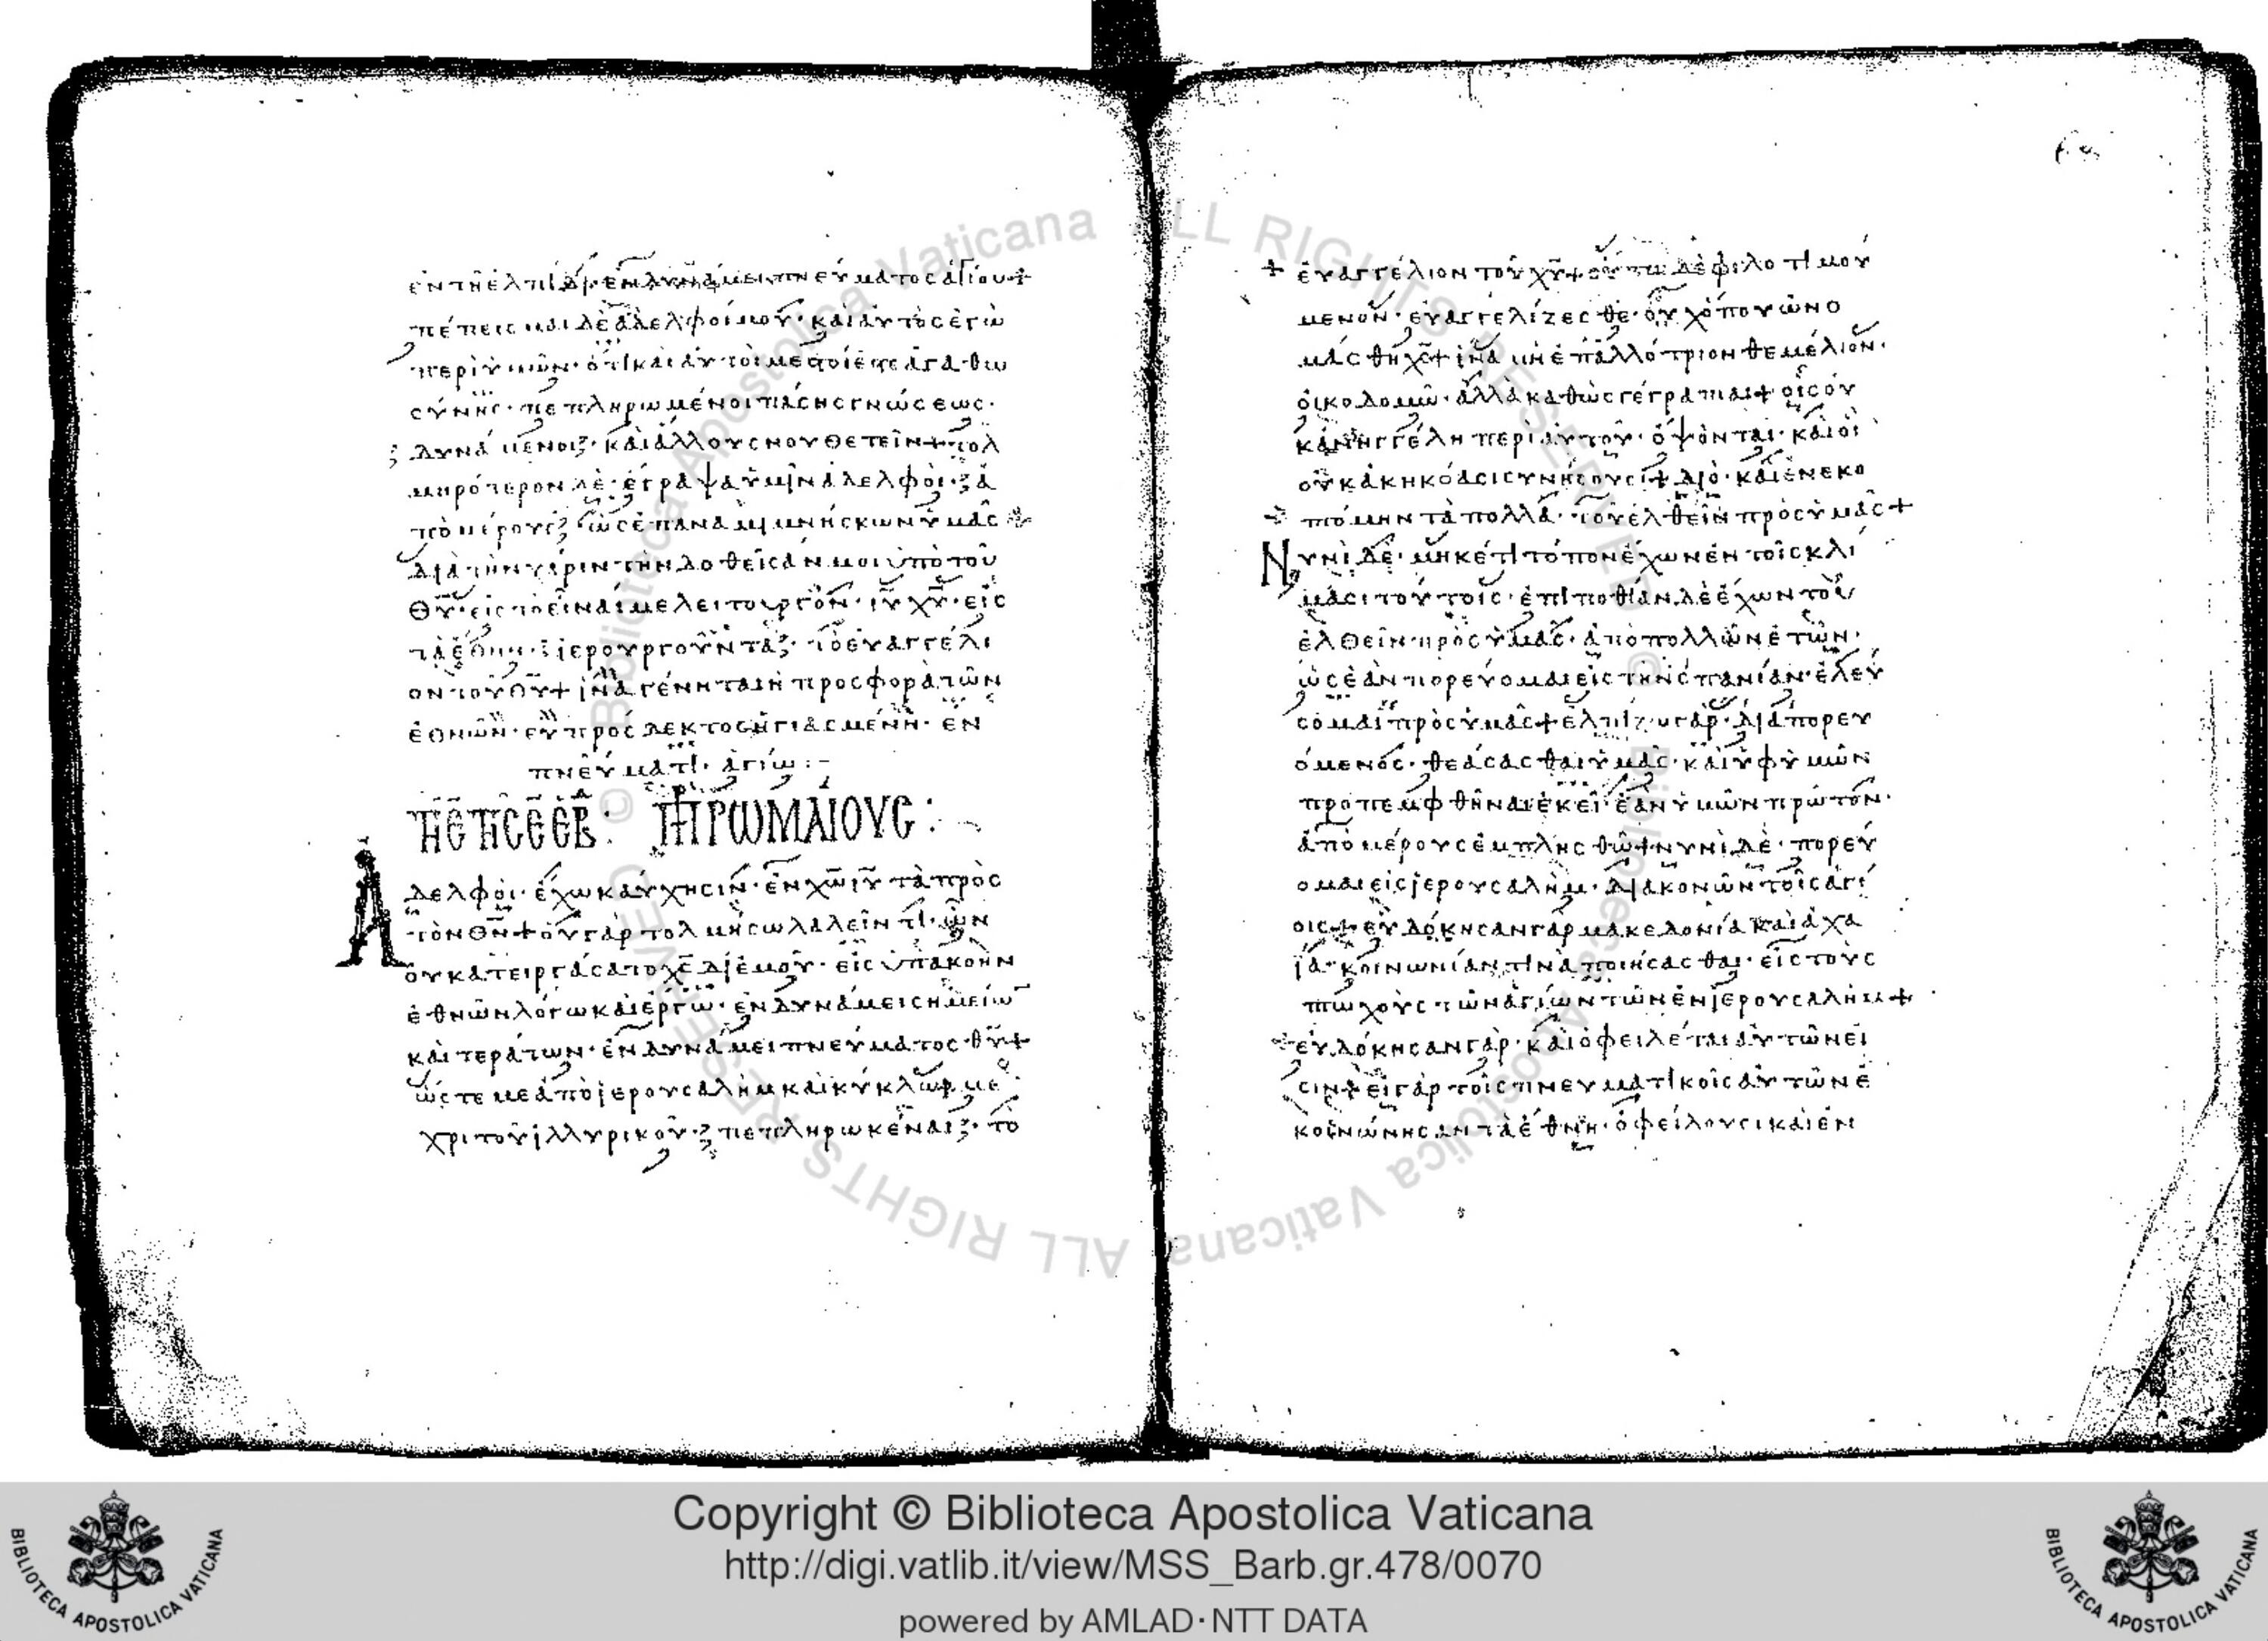 ἐν τῆ ἐλπίδι ἐν δυνάμει πνεύματος ἁγίου +
πέπεισμαι δὲ ἀδελφοί μου· καὶ αὐτὸς ἐγὼ
περὶ ὑμῶν· ὅτι καὶ αὐτοὶ μεστοί ἐστε ἀγαθω
σύνης· πεπληρωμένοι πάσης γνώσεως·
δυνάμενοι· καὶ ἄλλους νουθετεῖν + τολ
μηρότερον δὲ· ἔγραψα ὑμῖν ἀδελφοὶ· ἀ
πὸ μέρους· ὡς ἐπαναμιμνήσκων ὑμᾶς +
διὰ τὴν χάριν τὴν δοθεῖσάν μοι ὑπὸ τοῦ
θυ· εἰς τὸ εἶναί με λειτουργὸν· ιυ χυ· εἰς
τὰ ἔθνη· ἱερουργοῦντα· τὸ εὐαγγέλι
ον τοῦ θυ + ἵνα γένηται ἡ προσφορὰ τῶν
ἐθνῶν· εὐπρόσδεκτος ἡγιασμένη· ἐν
πνεύματι· ἁγίω :-
ΠΡ ΡΩΜΑΙΟΥΣ :
Ἀδελφοὶ· ἔχω καύχησιν· ἐν χω ιυ τὰ πρὸς
τὸν θν + οὐ γὰρ τολμήσω λαλεῖν τι· ὧν
οὐ κατειργάσατο χς δι ἐμοῦ· εἰς ὑπακοὴν
ἐθνῶν λόγω καὶ ἔργω· ἐν δυνάμει σημείων
καὶ τεράτων· ἐν δυνάμει πνεύματος θυ +
ὥστε με ἀπὸ ἱερουσαλὴμ καὶ κύκλω με
χρι τοῦ ἰλλυρικοῦ· πεπληρωκέναι· τὸ
+ εὐαγγέλιον τοῦ χυ + οὕτω δὲ φιλοτιμού
μενον· εὐαγγελίζεσθε· οὐχ ὅπου ὠνο
μάσθη χς + ἵνα μὴ ἐπ ἀλλότριον θεμέλιον·
οἰκοδομῶ· ἀλλὰ καθὼς γέγραπται + οἷς οὐ
κ ἀνηγγέλη περὶ αὐτοῦ· ὄψονται· καὶ οἱ
οὐκ ἀκηκόασι συνήσουσι + διὸ· καὶ ἐνεκο
πτόμην τὰ πολλὰ· τοῦ ἐλθεῖν πρὸς ὑμᾶς +
Νυνὶ δὲ· μηκέτι τόπον ἔχων ἐν τοῖς κλί
μασι τούτοις· ἐπιποθίαν δὲ ἔχων τοῦ
ἐλθεῖν πρὸς ὑμᾶς· ἀπὸ πολλῶν ἐτῶν·
ὡς ἐὰν πορεύομαι εἰς τὴν σπανίαν· ἐλεύ
σομαι πρὸς ὑμᾶς + ἐλπίζω γὰρ· διαπορευ
όμενος· θεάσασθαι ὑμᾶς· καὶ ὑφ ὑμῶν
προπεμφθῆναι ἐκεῖ· ἐὰν ὑμῶν πρῶτον·
ἀπὸ μέρους ἐμπλησθῶ + νυνὶ δὲ· πορεύ
ομαι εἰς ἱερουσαλὴμ· διακονῶν τοῖς ἁγί
οις + εὐδόκησαν γὰρ μακεδονία καὶ ἀχα
ΐα· κοινωνίαν τινὰ ποιήσασθαι· εἰς τοὺς
πτωχοὺς τῶν ἁγίων τῶν ἐν ἱερουσαλήμ +
+ εὐδόκησαν γὰρ· καὶ ὀφειλέται αὐτῶν εἰ
σιν + εἰ γὰρ τοῖς πνευματικοῖς αὐτῶν ἐ
κοινώνησαν τὰ ἔθνη· ὀφείλουσι καὶ ἐν
Copyright © Biblioteca Apostolica Vaticana
http://digi.vatlib.it/view/MSS_Barb.gr.478/0070
powered by AMLAD·NTT DATA
BIBLIOTECA APOSTOLICA VATICANA
BIBLIOTECA APOSTOLICA VATICANA